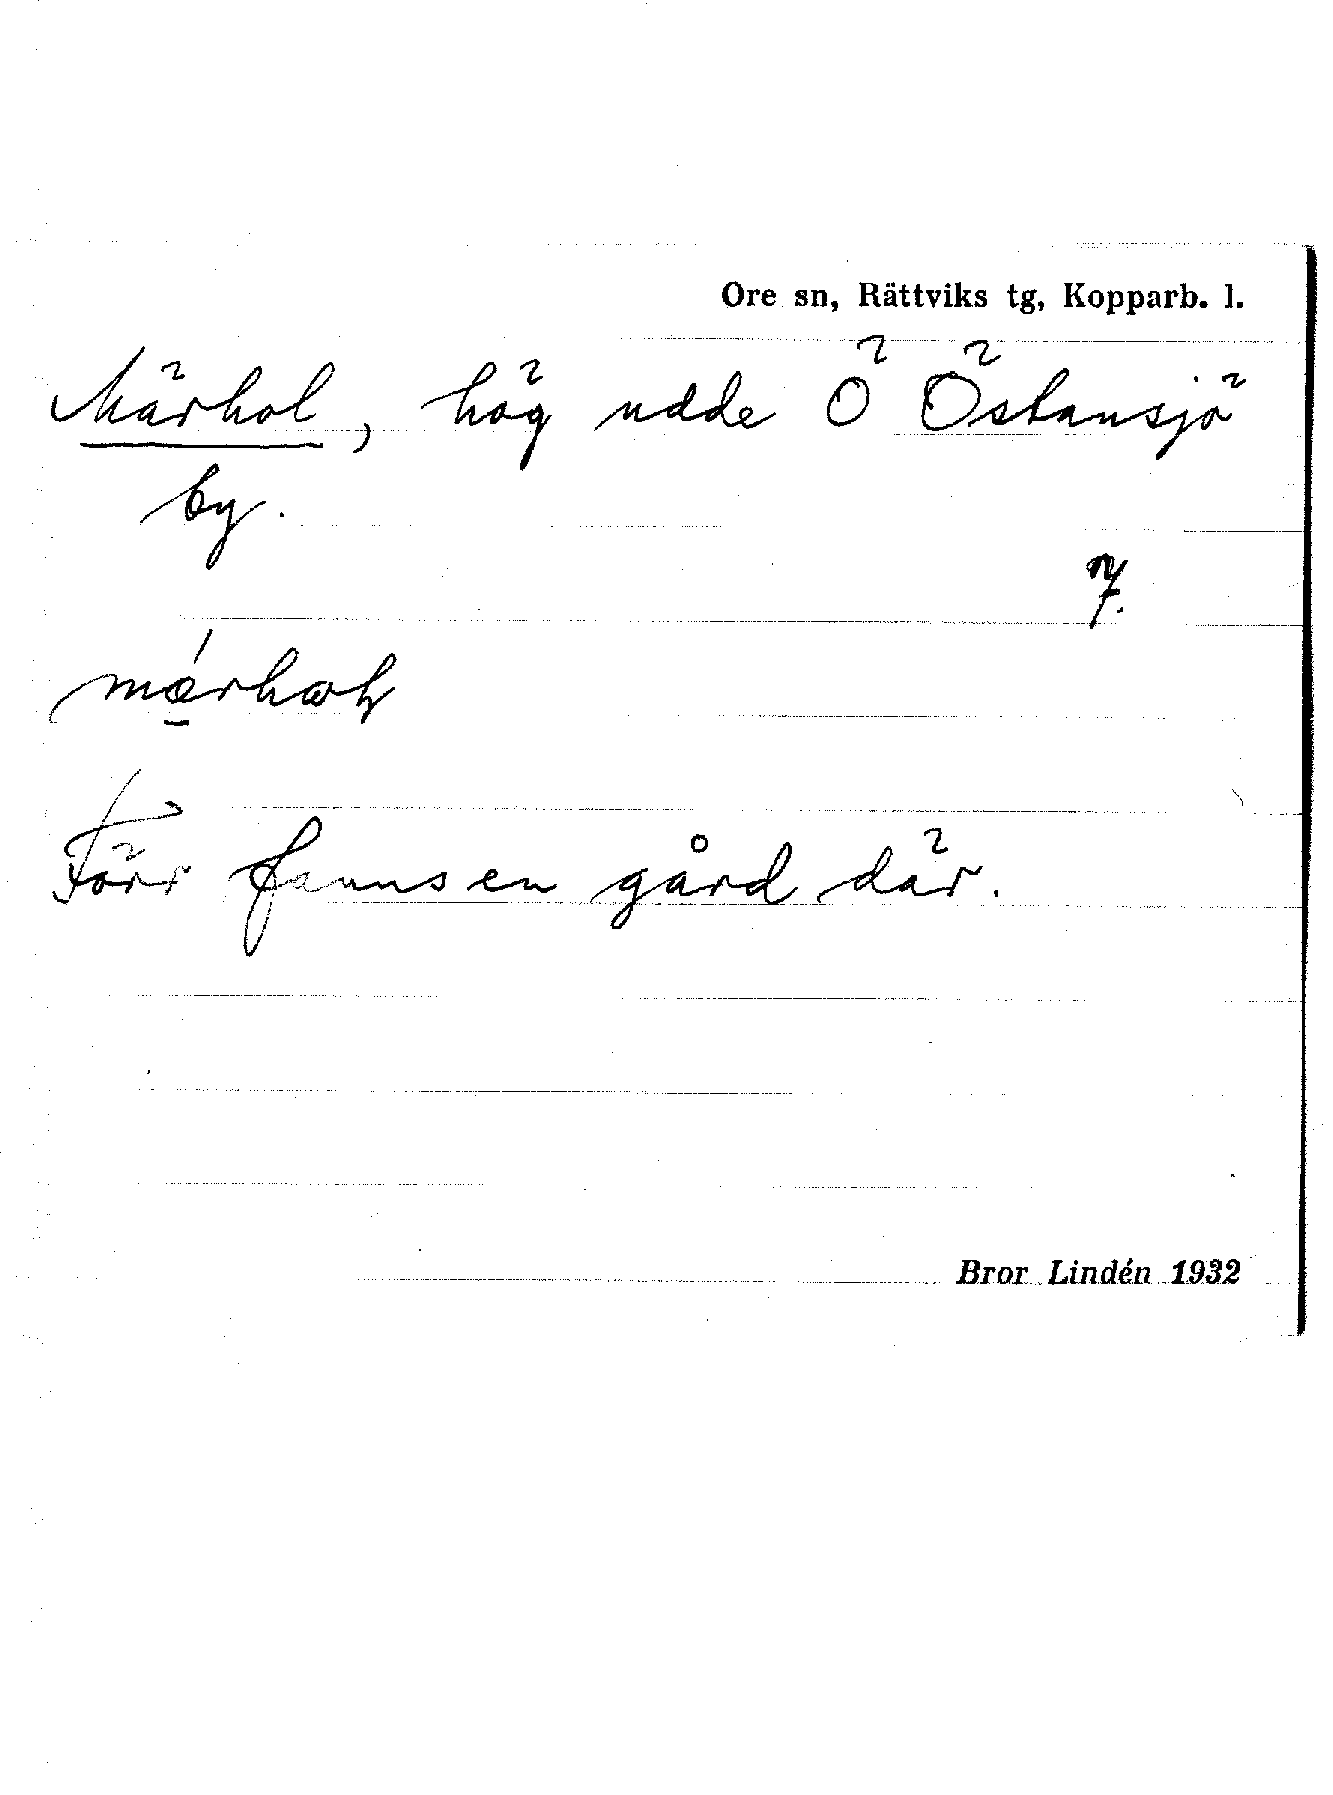 Ore sn, Rättviks tg, Kopparb. l.
Märhol, hög udde Ö Östansjö
by.
7.
Förr fanns en gård där.
Bror Lindén 1932